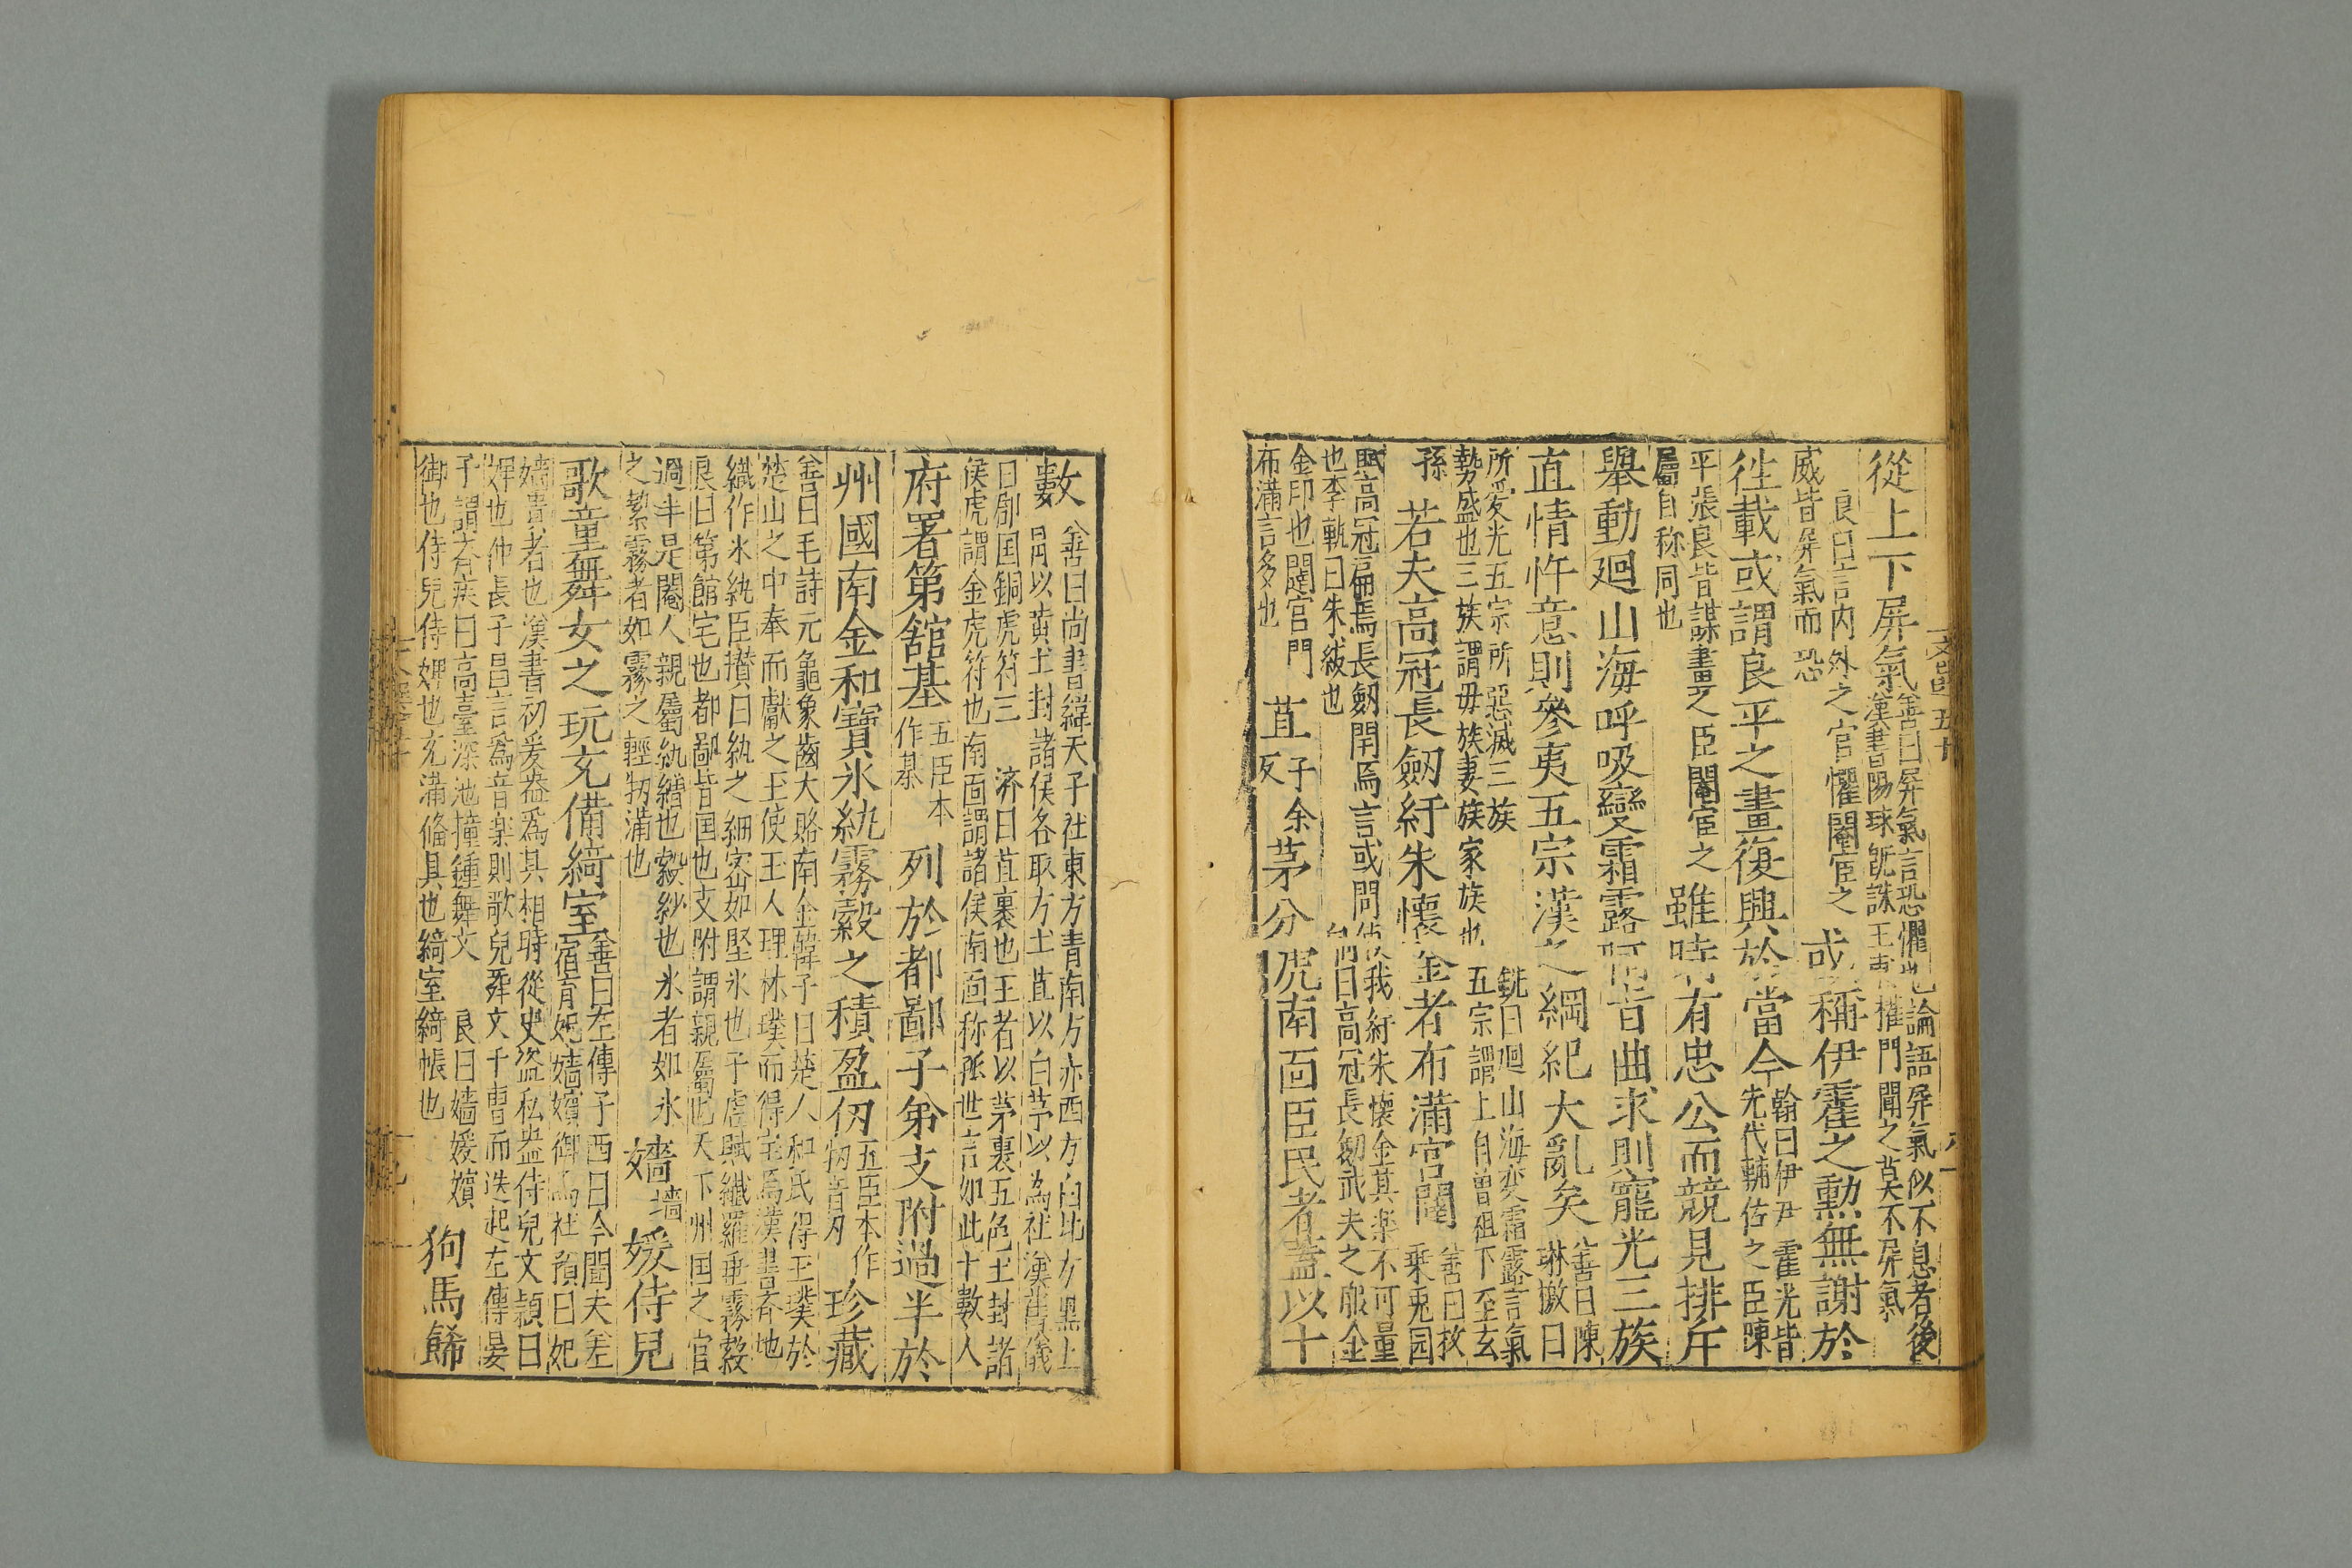 從上下屏氣善曰屏氣言恐懼也論語屏氣似不息者後
漢書陽球旣誅王甫權門聞之莫不屏氣
良曰言內外之官懼閹宦之
威皆屏氣而恐
或稱伊霍之勳無謝於
徃載或謂良平之畫復興於當今翰曰伊尹霍光皆
先代輔佐之臣陳
平張良皆謀畫之臣閹宦之
屬自称同也
雖時有忠公而競見排斥
舉動廻山海呼吸變霜露阿旨曲求則寵光三族
直情忤意則參夷五宗漢之綱紀大亂矣善曰陳
琳檄曰
所愛光五宗所惡滅三族
銑曰廻山海变霜露言氣
勢盛也三族謂毋族妻族家族也
五宗謂上自曽祖下至玄
孫
若夫高冠長劒紆朱懷金者布滿宮闈善曰枚
乘兎园
賦高冠扁焉長劒閈焉言或問使我紆朱懷金其楽不可量
也李軌曰朱紱也
向曰高冠長劒武夫之服金
金印也闥宫門
布滿言多也
苴子余
反
茅分虎南面臣民者蓋以十
數善曰尚書緯天子社東方青南方赤西方白北方黑上
冐以黄土封諸侯各取方土苴以白茅以為社漢舊儀
曰郡国銅虎符三
济曰苴裹也王者以茅裹五色土封諸
侯虎謂金虎符也南面謂諸侯南面称孤世言如此十數人
府署第舘基五臣本
作棊
列於都鄙子弟支附過半於
州國南金和寶氷紈霧縠之積盈仞五臣本作
牣音刃
珍藏
善曰毛詩元龜象齒大賂南金韓子曰楚人和氏得玉璞於
楚山之中奉而獻之王使玉人理其璞而得宝焉漢書齐地
織作氷紈臣攅曰紈之細密如堅氷也子虛賦纎羅垂霧縠
良曰第館宅也都鄙皆国也支附謂親屬也天下州国之官
過半是閹人親屬紈繒也縠紗也氷者如氷
之絜霧者如霧之輕牣滿也
嬙墻媛侍兒
歌童舞女之玩充備綺室善曰左傳子西曰今聞夫差
宿有妃嬙嬪御焉杜預曰妃
嬙貴者也漢書初爰盎爲其相時從史盜私盎侍兒文頴曰
婢也仲長子昌言爲音楽則歌兒舞文千曹而迭起左傳晏
子謂齐疾曰高臺深池撞鍾舞文
良曰嬙媛嬪
御也侍兒侍婢也充滿俻具也綺室綺帳也
狗馬餙